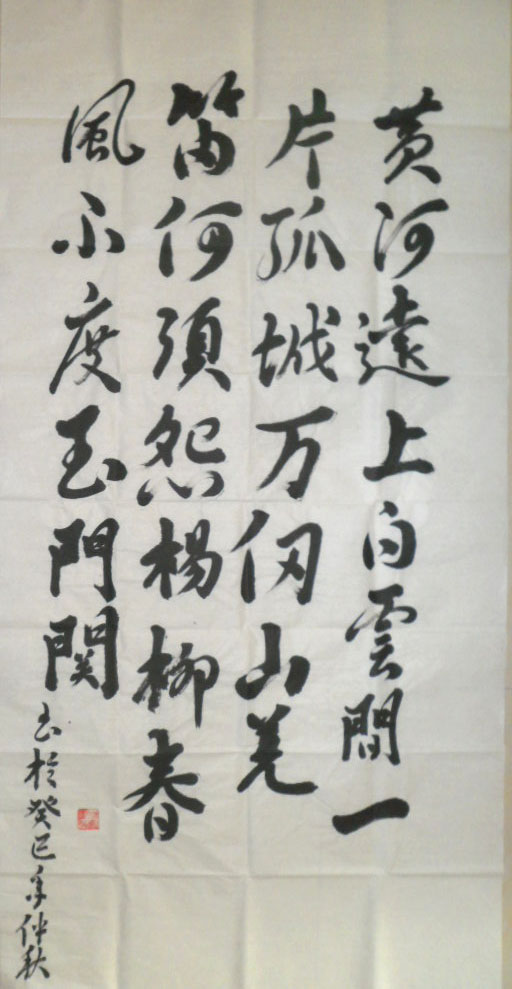 黄河遠上白雲間一
片孤城万仞山羌
笛何須怨楊柳春
風不度玉門関
书於癸巳年仲秋